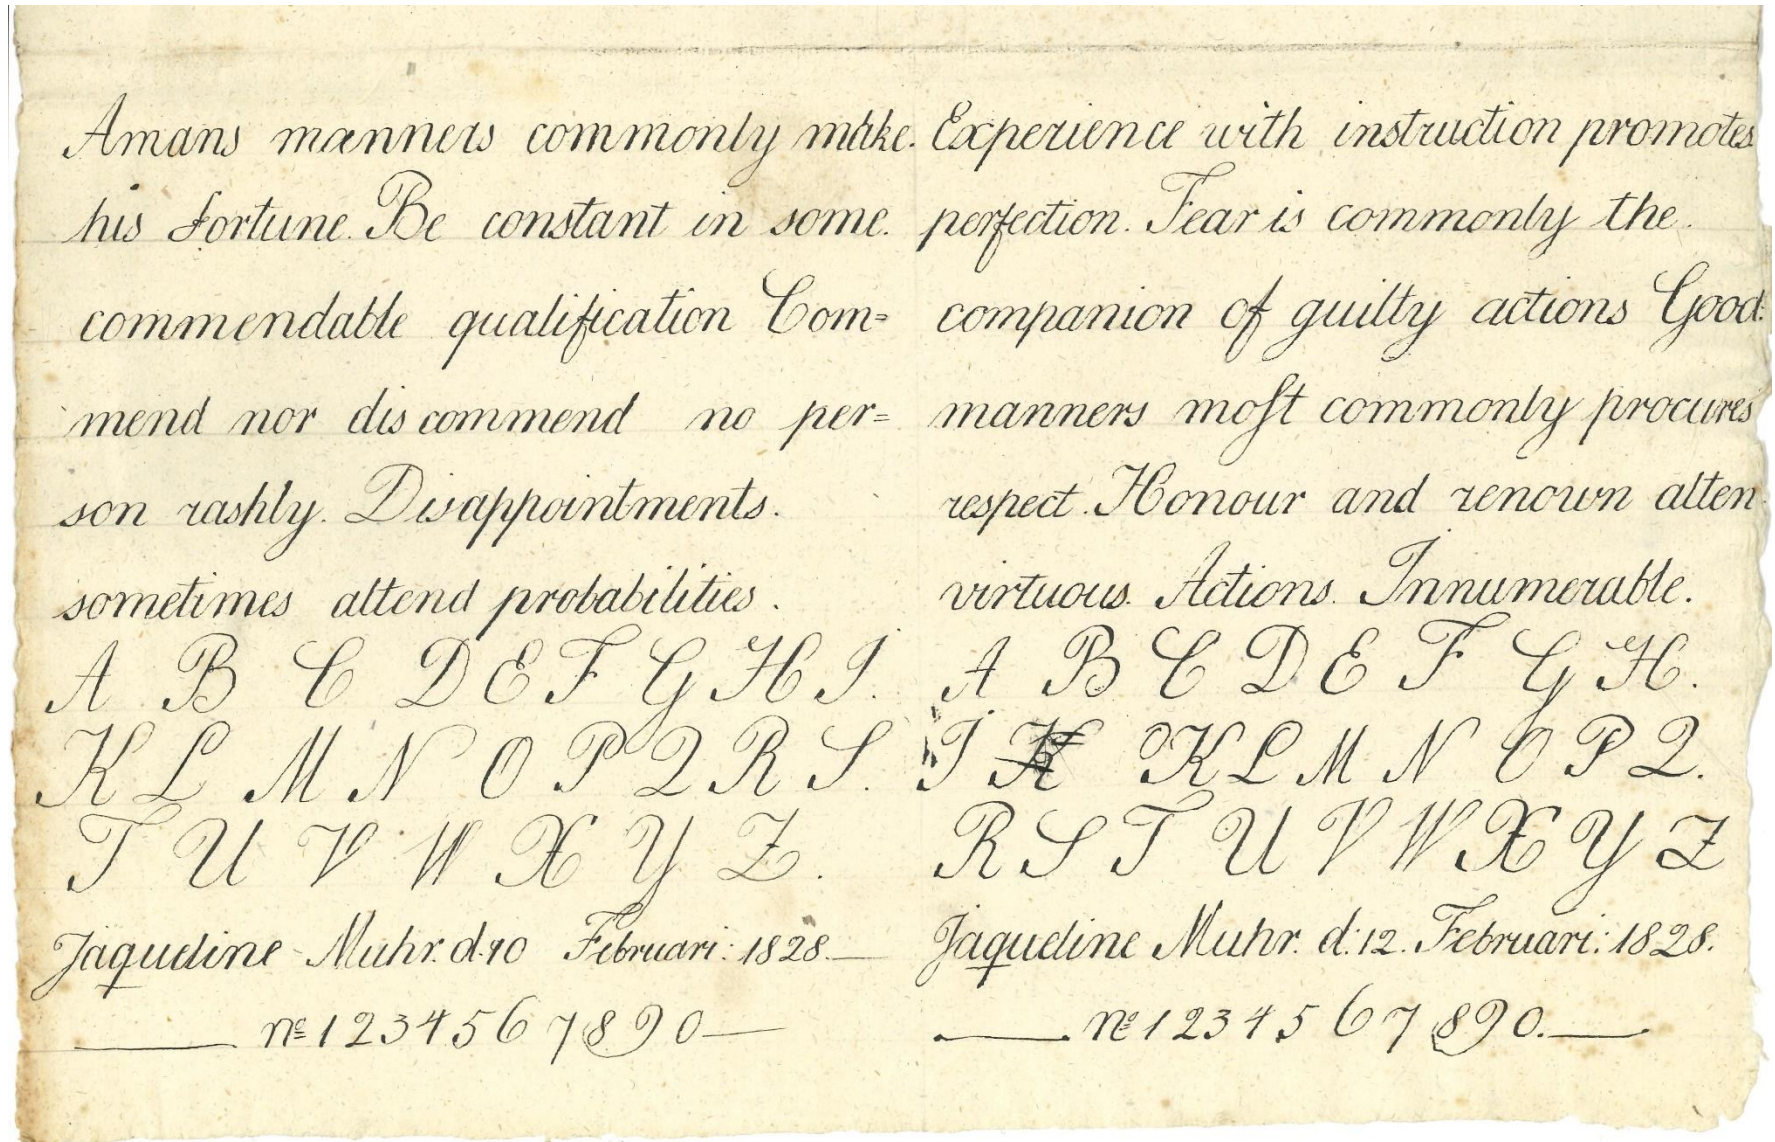 Amans manners commonly make.
his fortune. Be constant in some.
commendable qualification Com=
mend nor dis commend no per=
son rashly. Disappointments.
sometimes attend probabilities.
A B C D E F G H I.
K L M N O P Q R S.
T U V W X Y Z.
Jaqueline Muhr. d. 10 Februari: 1828.
nº 1 2 3 4 5 6 7 8 9 0
Experience with instruction promotes
perfection. Fear is commonly the.
companion of guilty actions Good.
manners moſt commonly procures
respect. Honour and renown atten
virtuous. Actions. Innumerable.
A B C D E F G H.
I K K L M N O P Q.
R S T U V W X Y Z
Jaqueline Muhr. d: 12. Februari: 1828.
nº 1 2 3 4 5 6 7 8 9 0.